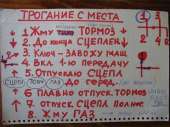 ТРОГАНИЕ С МЕСТА
1. Жму ТОРМОЗ
2. До конца СЦЕПЛЕН.
3. Ключ - ЗАВОЖУ МАШ
4. ВКЛ 1-ю передачу
5. Отпускаю СЦЕПЛ
до серед.
6 ПЛАВНО отпуск. ТОРМОЗ
7 отпуск. СЦЕПЛ полне
8 Жму ГАЗ
1 3
2 4